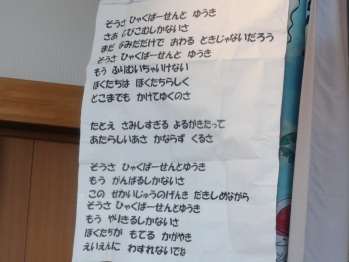 そうさ ひゃくぱーせんと ゆうき
さあ とびこむしかないさ
まだ なみだだけで おわる ときじゃないだろう
そうさ ひゃくぱーせんと ゆうき
もう ふりむいちゃいけない
ぼくたちは ぼくたちらしく
どこまでも かけてゆくのさ
たとえ さみしすぎる よるがきたって
あたらしいあさ かならず くるさ
そうさ ひゃくぱーせんとゆうき
もう がんばるしかないさ
この せかいじゅうのげんき だきしめながら
そうさ ひゃくぱーせんとゆうき
もう やりきるしかないさ
ぼくたちが もてる かがやき
えいえんに わすれないでね